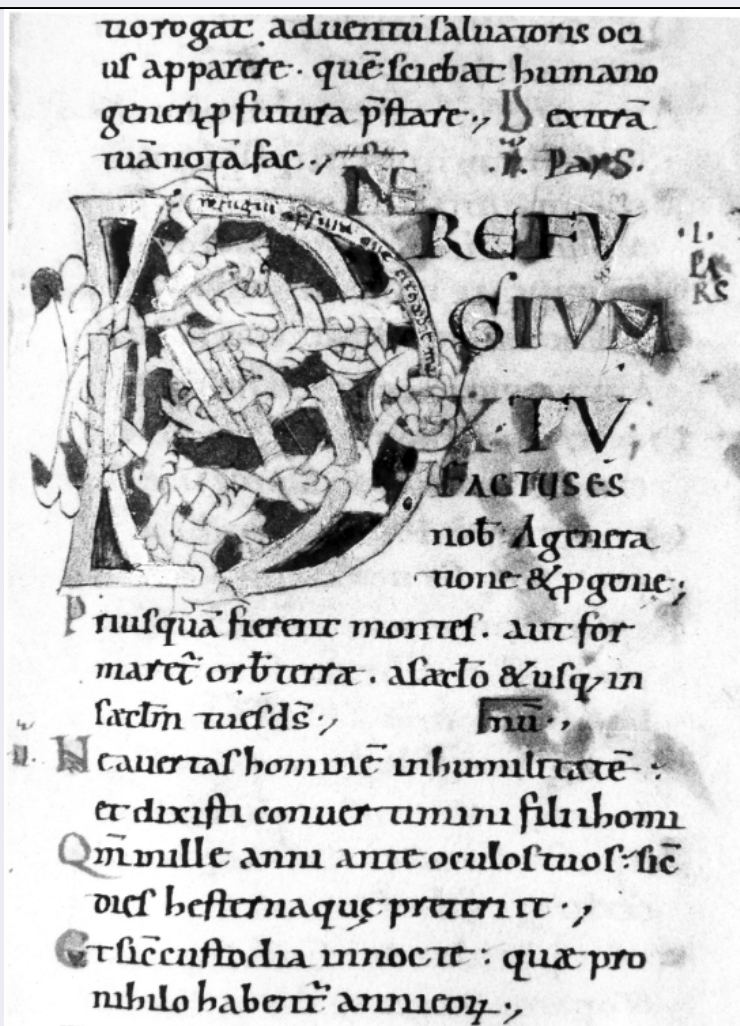 tio rogat adventū salvatoris oci
us apparere. quē sciebat humano
generi ꝓfutura p̄stare., Dexterā
tuā notā fac.,
.II. PARS.
DNE REFU
GIUM
.I. PARS
FACTUS ES
nob̄ A genera
tione & ꝓgenie;
Priusquā fierent montes. aut for
maret᷑ orb̄ terræ. a sæclō & usq; in
sæclm̄ tu es ds̄.,
II. Ne avertas hominē in humilitatē:
et dixisti convertimini filii homi
Qm̄ mille anni ante oculos tuos: sic̄
dies hesterna quę preteriit.,
Et sic̄ custodia in nocte: quæ pro
nihilo habent᷑ anni eoꝝ.,